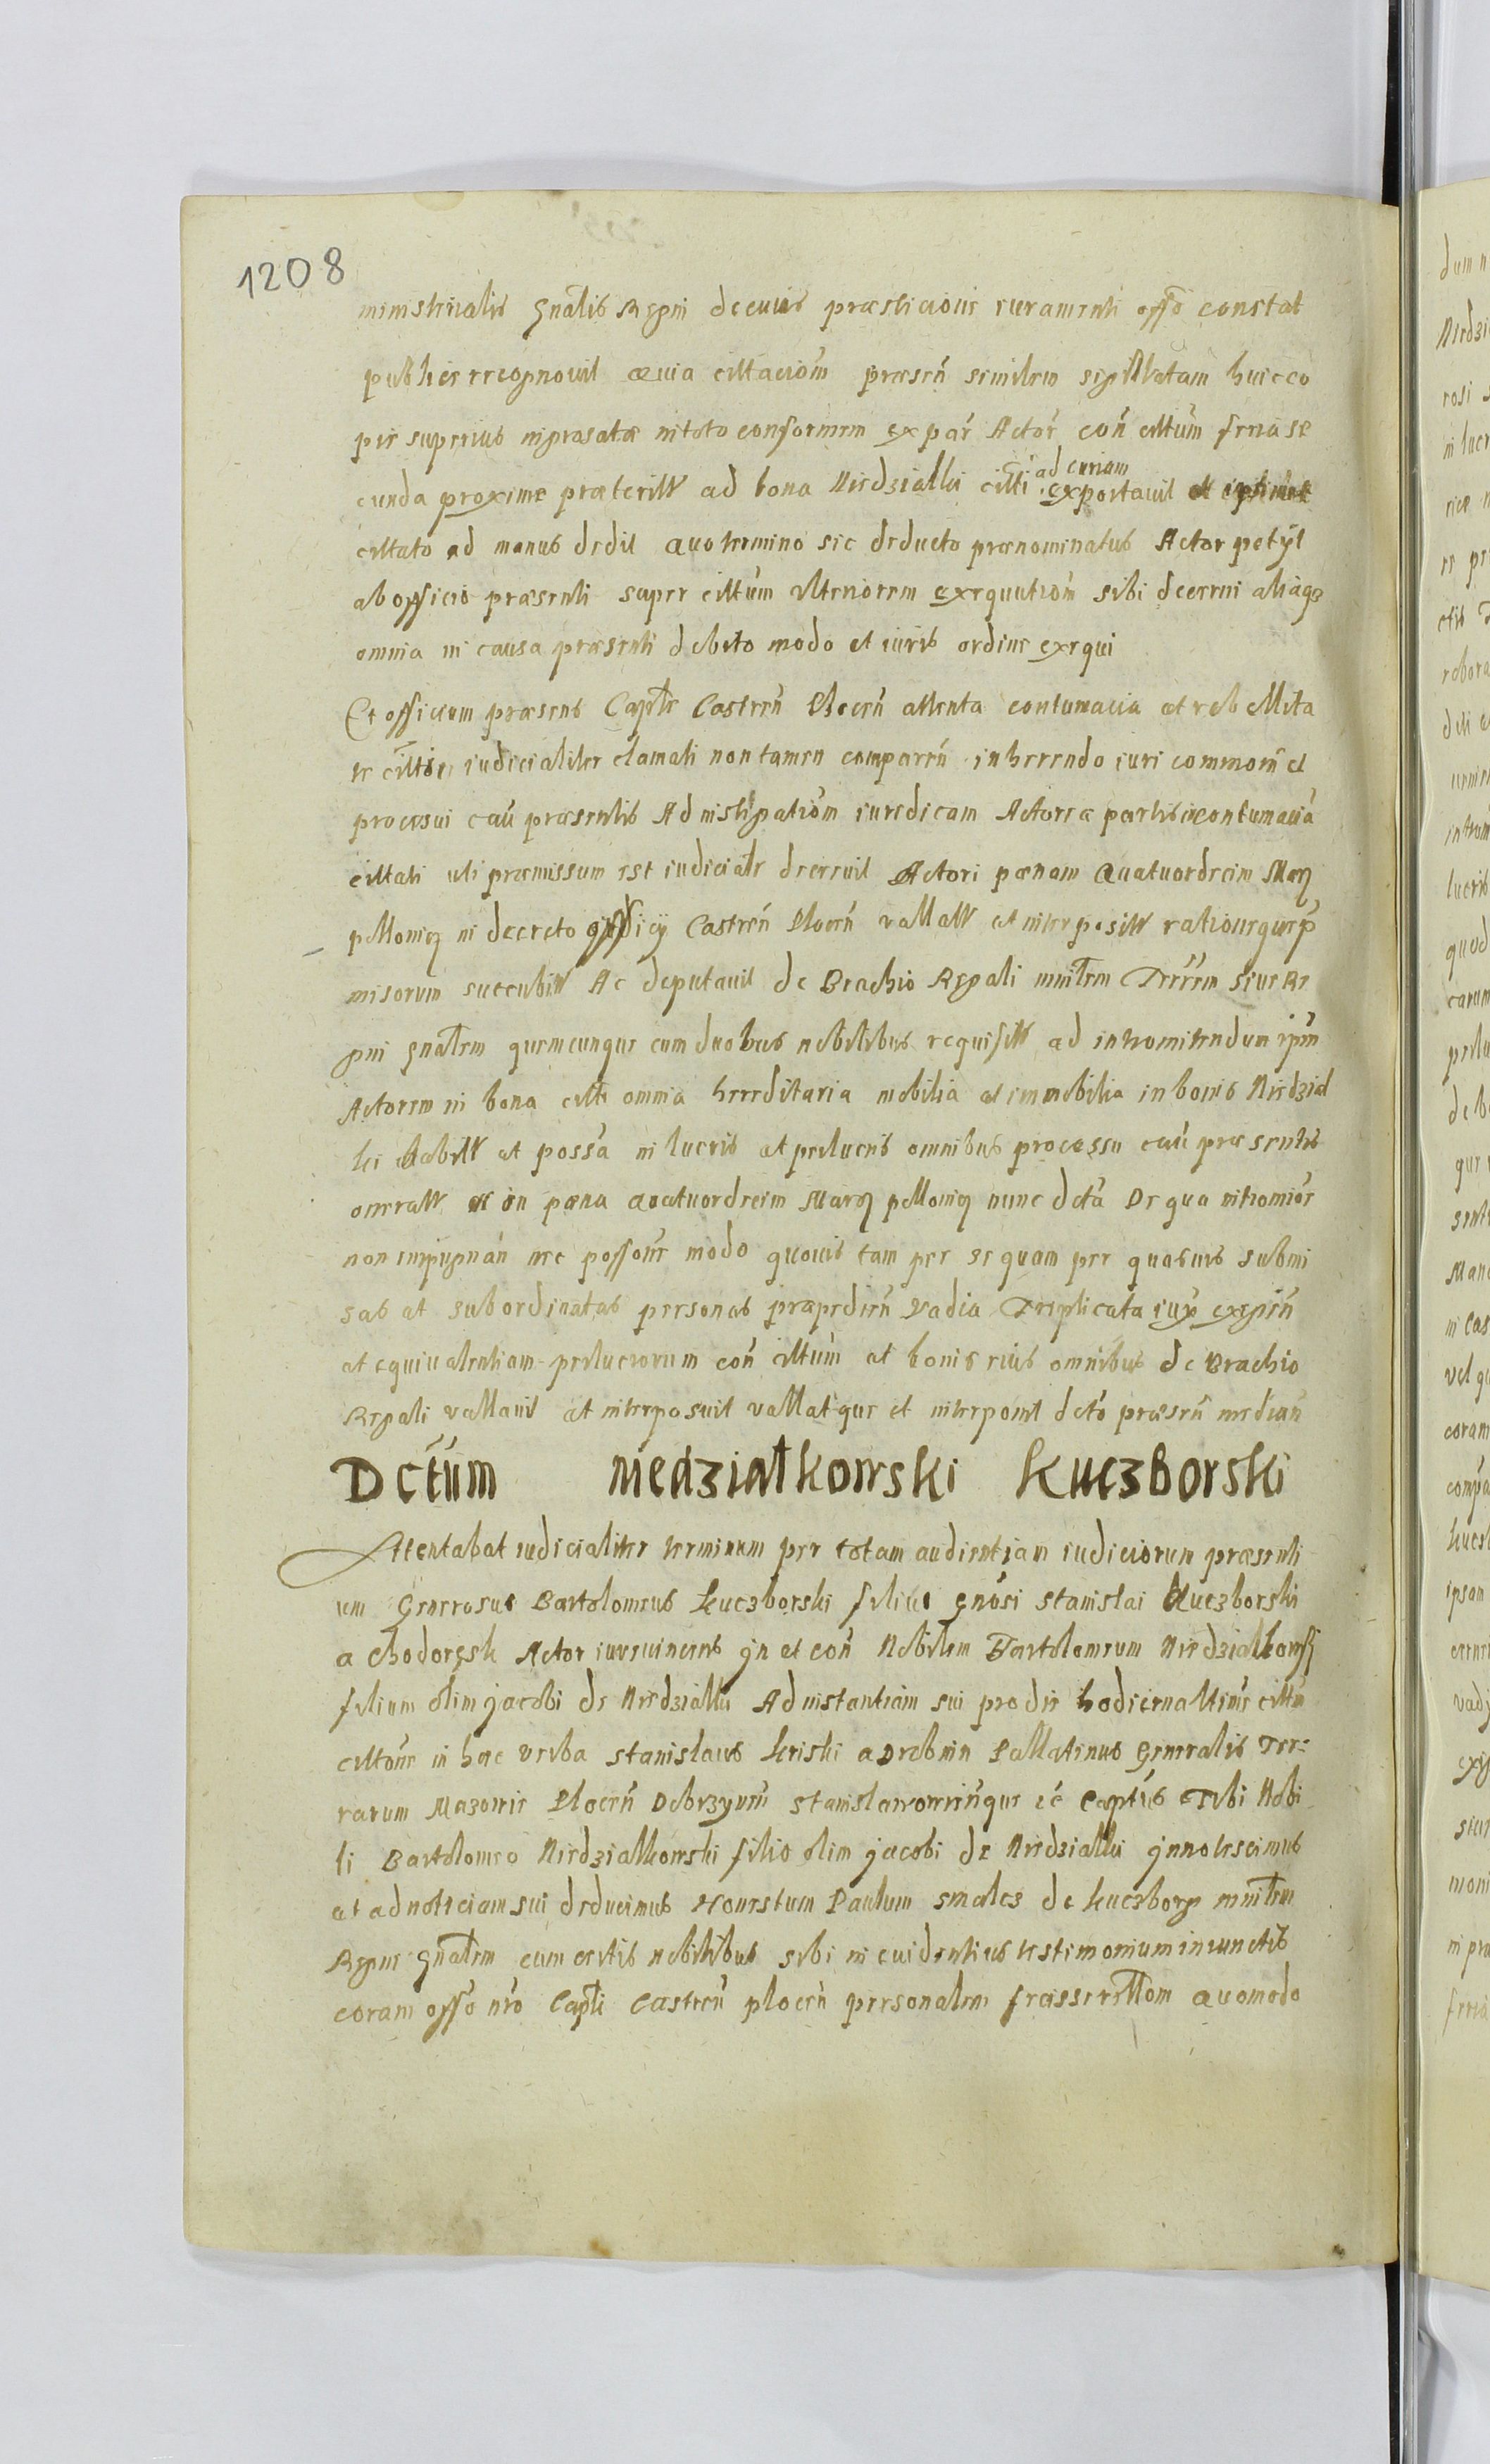 1208
ministerialis gnalis Regni de cuius præsticione iuramenti offo constat
publice recognovit quia cittacionem præsen similem sigillatam huic co
piæ superius ingrosatæ in toto conformem ex par Actor con cittum feria se
cunda proxime præteritt ad bona Niedziallki citti ad curiam exportavit et
cittato ad manus dedit Quo termino sic deducto prænominatus Actor petyt
ab officio præsenti super cittum ulteriorem exequutiom sibi decerni aliaqz
omnia in causa præsenti debito modo et iuris ordine exequi
Et officium præsens Captle Castren Plocen attenta contumacia et rebellita
te citti iudicialiter clamati non tamen comparen inherendo iuri commoni et
procesui cau præsentis Ad instigatiom iuredicam Actoreæ partis in contumacia
cittati uti præmissum est iudicialr decrevit Actori pænam Quatuordecim Marq
pollonicq in decreto officij Castren Plocen vallatt et interpositt rationequep
misorum succubitt Ac deputavit de Brachio Regali mnitrem Terrem sive Re
gni gnalem quemcunque cum duobus nobilibus requisitt ad intromitendum ipm
Actorem in bona citti omnia hereditaria mobilia et immobilia in bonis Niedzial
ki habitt et possa in lucris et perlucris omnibus processu cau præsentis
oneratt et in pæna Quatuordecim Marcq pollonicq nunc dcta De qua intromiōe
non impugnan nec possoūr modo quovis tam per se quam per quasvis submi
sas et subordinatas personas præpedien Vadia Treplicata iux exegien
et equivalentiam perlucrorum con cittum et bonis eius omnibus de Brachio
Regali vallavit et interposuit vallatque et interponit dcto præsen median
Dctum Niedziałkowski Kuczborski
Attentabat iudicialiter terminum per totam audientiam iudiciorum præsenti
um Generosus Bartolomeus Kuczborski filius gnosi Stanislai Kuczborski
a Chodoręsk Actor iurevincens in et con Nobilem Bartolomeum Niedzialkowski
filium olim Jacobi de Niedziallki Ad instantiam sui pro die hodierna
cittoni in hæc verba Stanislaus Kriski a Drobnin Pallatinus Generalis Ter=
rarum Mazowie Plocen Dobrzynen Stanislawowienque etc Captus Tibi Nobi
li Bartolomeo Niedzialkowski filio olim Jacobi de Niedziallki innotescimus
et ad noticiam sui deducimus Honestum Paulum Smalcz de Kuczborg mnitrem
Regni gnalem cum certis nobilibus sibi in evidentius testimonium iniunctis
coram offo nro Capti Castren plocen personalem Quomodo